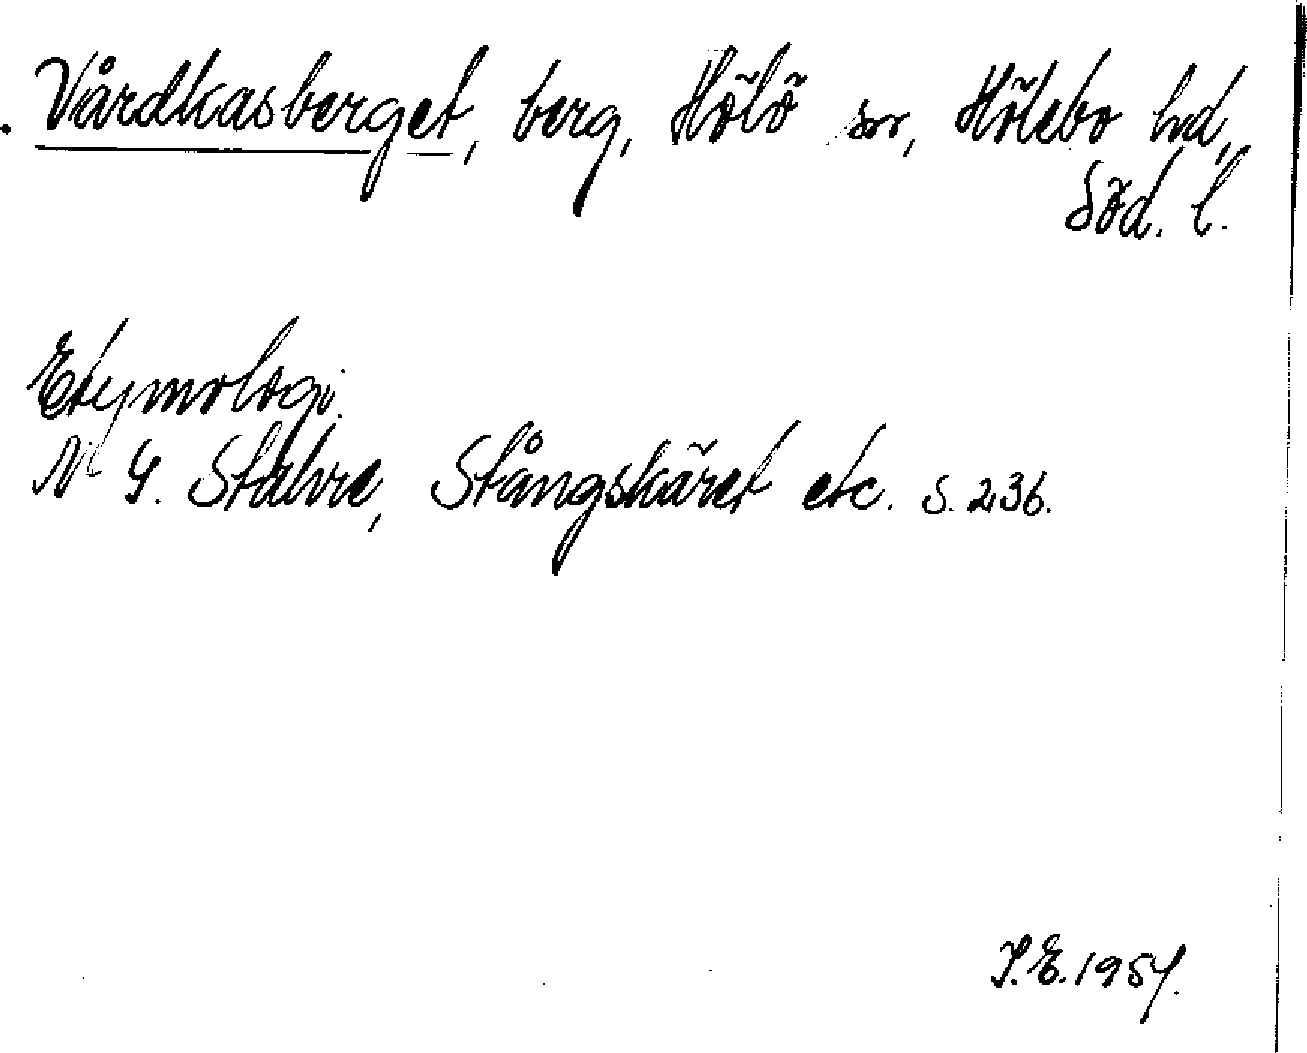 Vårdkasberget, berg, Hölö sn, Hölebo hd,
Söd. l.
Etymologi.
N G. Stahre, Stångskäret etc. S. 236.
E. 1957.